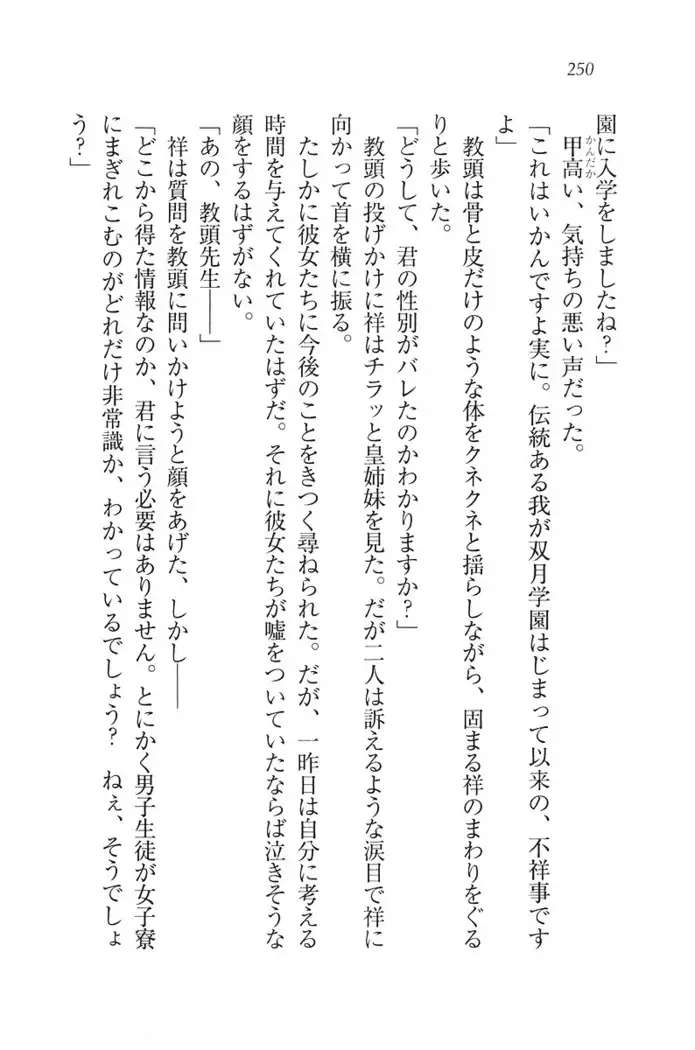 250
園に入学をしましたね？」
甲高い、気持ちの悪い声だった。
「これはいかんですよ実に。伝統ある我が双月学園はじまって以来の、不祥事です
よ」
教頭は骨と皮だけのような体をクネクネと揺らしながら、固まる祥のまわりをぐる
りと歩いた。
「どうして、君の性別がバレたのかわかりますか？」
教頭の投げかけに祥はチラッと皇姉妹を見た。だが二人は訴えるような涙目で祥に
向かって首を横に振る。
たしかに彼女たちに今後のことをきつく尋ねられた。だが、一昨日は自分に考える
時間を与えてくれていたはずだ。それに彼女たちが嘘をついていたならば泣きそうな
顔をするはずがない。
「あの、教頭先生――」
祥は質問を教頭に問いかけようと顔をあげた、しかし――
「どこから得た情報なのか、君に言う必要はありません。とにかく男子生徒が女子寮
にまぎれこむのがどれだけ非常識か、わかっているでしょう？　ねぇ、そうでしょ
う？」
かんだか